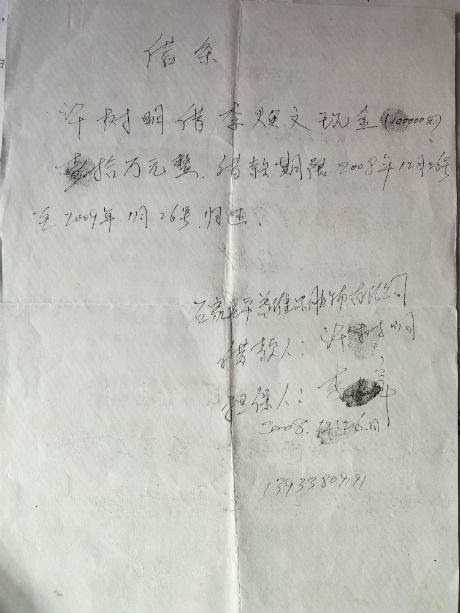 借条
许树明借李焕文现金(100000元)
壹拾万元整.借款期限2008年12月26号
至2009年1月26号.归还.
石家庄 服饰有限公司
借款人:许树明
担保人:李
2008.12.26.
13933809191